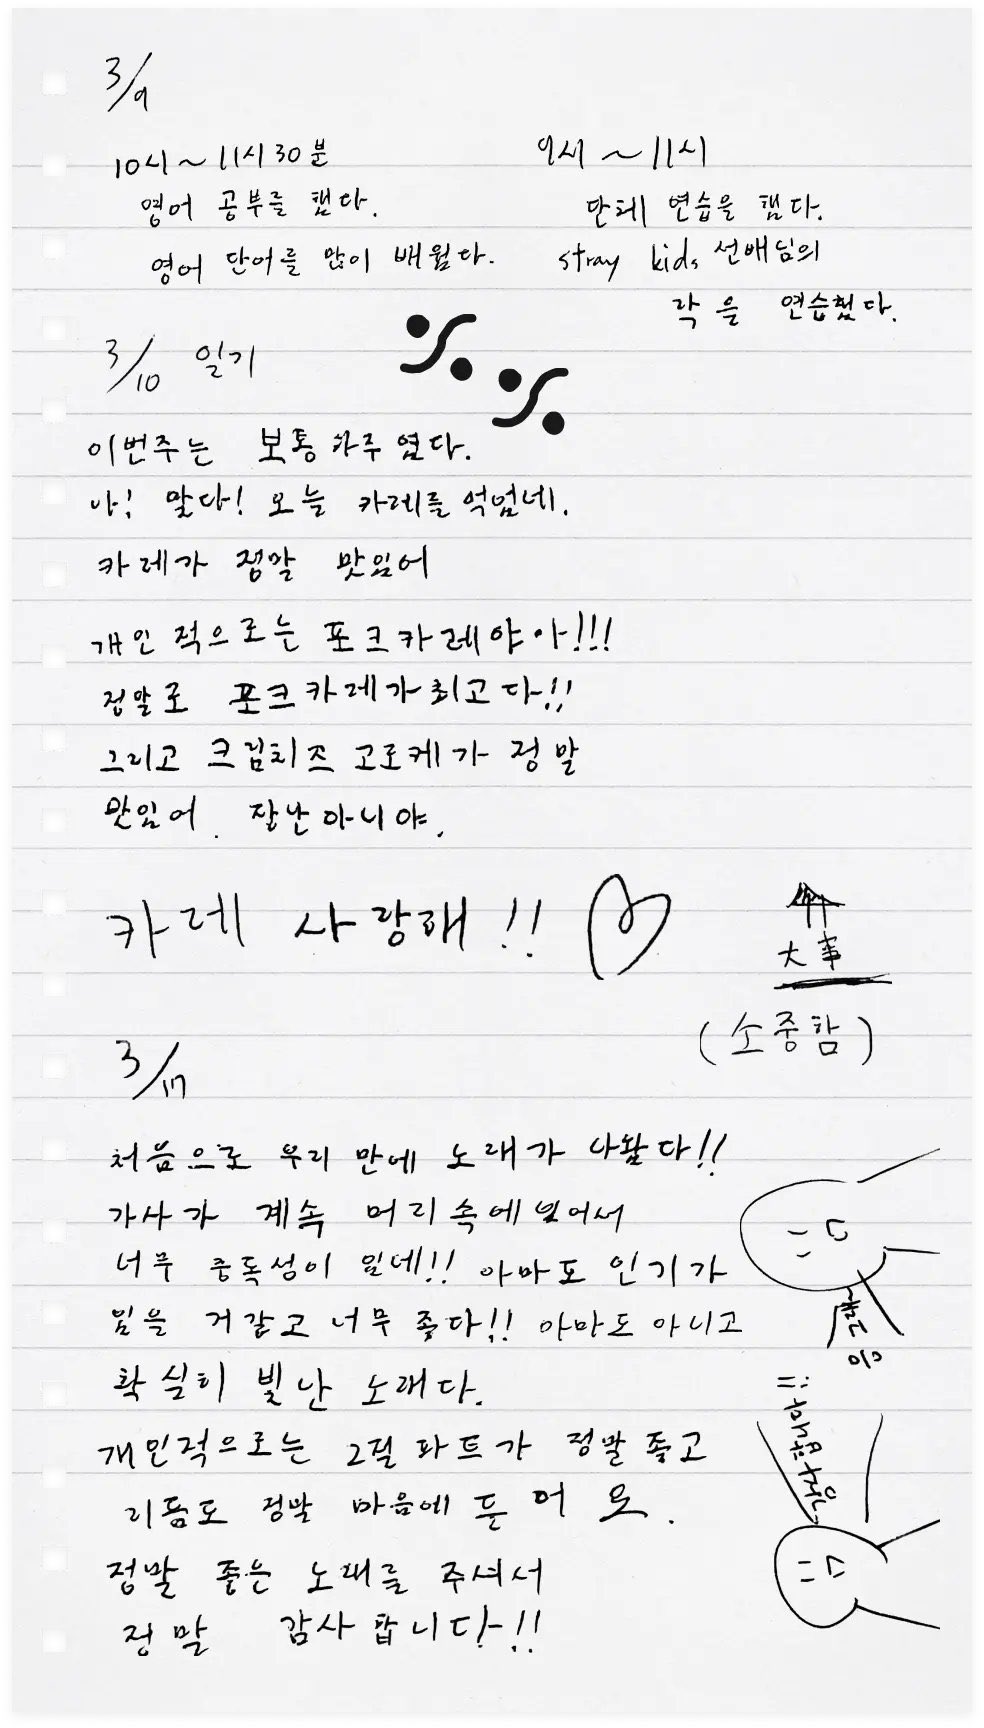 3/9
10시~11시30분
영어 공부를 했다.
영어 단어를 많이 배웠다.
9시~11시
단체 연습을 했다.
stray kids 선배님의
락을 연습했다.
3/10 일기
이번주는 보통 하루였다.
아! 맞다! 오늘 카레를 먹었네.
카레가 정말 맛있어
개인적으로는 포크카레야아!!!
정말로 포크카레가 최고다!!
그리고 크림치즈 고로케가 정말
맛있어. 장난아니야.
카레 사랑해!!
大事
(소중함)
3/17
처음으로 우리 만에 노래가 나왔다!!
가사가 계속 머리속에 있어서
너무 중독성이 있네!! 아마도 인기가
있을 거 같고 너무 좋다!! 아마도 아니고
확실히 빛난 노래다.
개인적으로는 2절 파트가 정말 좋고
리듬도 정말 마음에 들어요.
정말 좋은 노래를 주셔서
정말 감사합니다!!